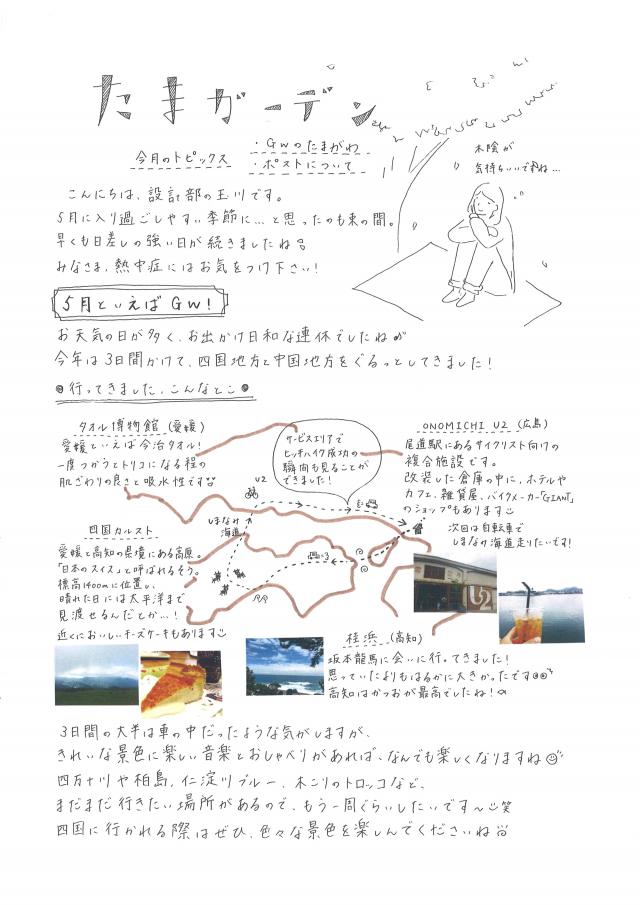 たまガーデン
今月のトピックス
・GWのたまがわ
・ポストについて
木陰が
気持ちいいですね…
こんにちは、設計部の玉川です。
5月に入り過ごしやすい季節に…と思ったのも束の間。
早くも日差しの強い日が続きましたね。
みなさま、熱中症にはお気をつけ下さい！
5月といえばGW！
お天気の日が多く、お出かけ日和な連休でしたね
今年は3日間かけて、四国地方と中国地方をぐるっとしてきました！
行ってきました、こんなとこ
タオル博物館（愛媛）
愛媛といえば今治タオル！
一度つかうとトリコになる程の
肌ざわりの良さと吸水性です
サービスエリアで
ヒッチハイク成功の
瞬間も見ることが
できました！
ONOMICHI U2（広島）
尾道駅にあるサイクリスト向けの
複合施設です。
改装した倉庫の中に、ホテルや
カフェ、雑貨屋、バイクメーカー「GIANT」
のショップもあります
次回は自転車で
しまなみ海道走りたいです！
U2
しまなみ
海道
×3
四国カルスト
愛媛と高知の県境にある高原。
「日本のスイス」と呼ばれるそう。
標高1400mに位置し、
晴れた日には太平洋まで
見渡せるんだとか…！
近くにおいしいチーズケーキもあります
U2
桂浜（高知）
坂本龍馬に会いに行ってきました！
思っていたよりもはるかに大きかったです
高知はかつおが最高でしたね！
3日間の大半は車の中だったような気がしますが、
きれいな景色に楽しい音楽とおしゃべりがあれば、なんでも楽しくなりますね
四万十川や柏島、仁淀川ブルー、木こりのトロッコなど、
まだまだ行きたい場所があるので、もう一周ぐらいしたいです〜笑
四国に行かれる際はぜひ、色々な景色を楽しんでくださいね